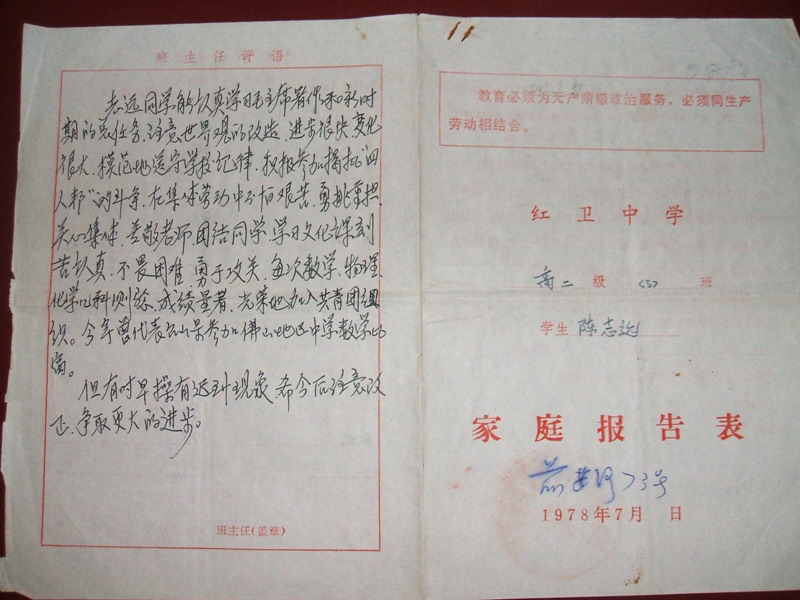 班主任评语
志远同学能认真学习毛主席著作和新时
期的总任务，注意世界观的改造，进步很快变化
很大，模范地遵守学校记律，积极参加揭批“四
人邦”的斗争，在集体劳动中不怕艰苦，勇挑重担，
关心集体，尊敬老师，团结同学，学习文化课刻
苦认真，不畏困难，勇于攻关，每次数学、物理、
化学几科测验，成绩显著，光荣地加入共青团组
织。今年曾代表 参加佛山地区中学数学比
赛。
但有时早操有迟到现象，希今后注意改
正，争取更大的进步。
班主任（盖章）
11
教育必须为无产阶级政治服务，必须同生产
劳动相结合。
红卫中学
高二级 〈3〉 班
学生 陈志远
家庭报告表
1978年7月 日